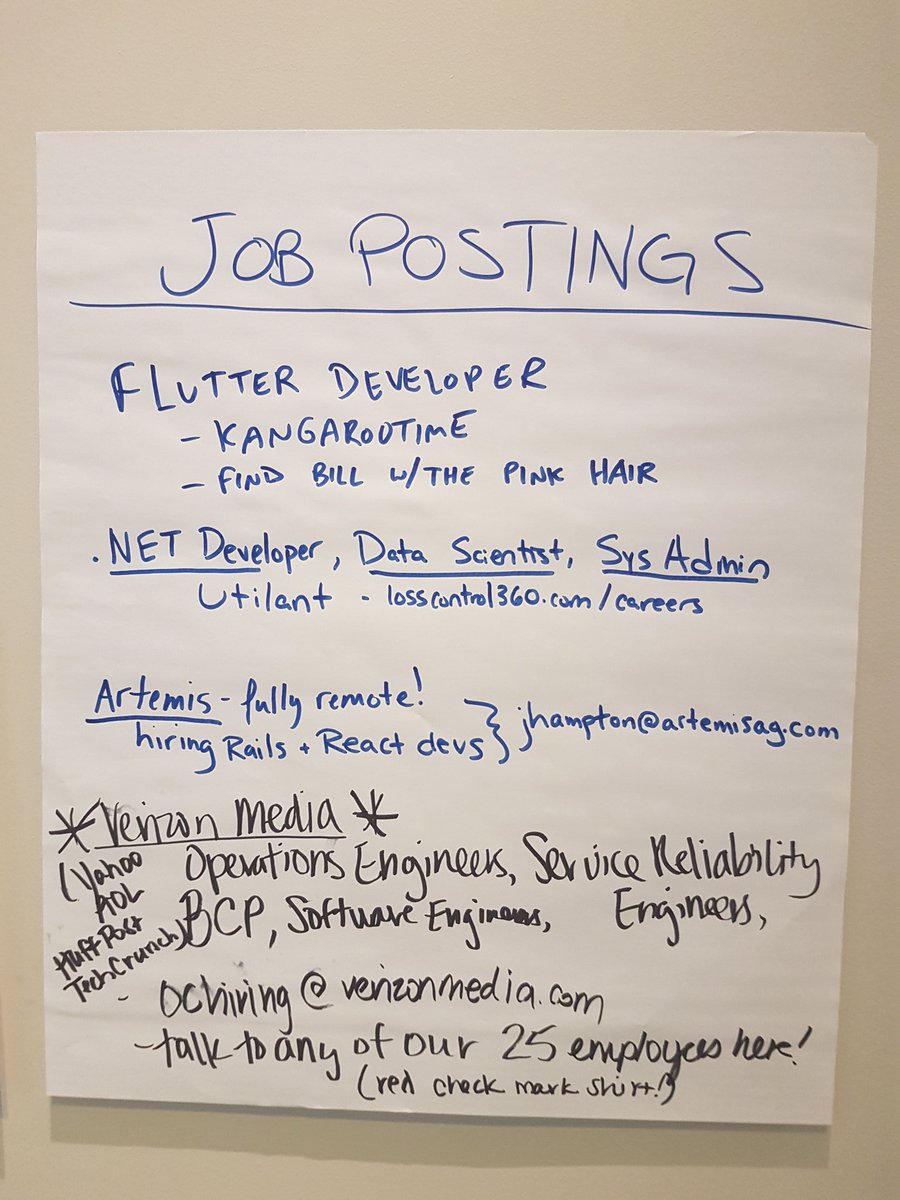 JOB POSTINGS
FLUTTER DEVELOPER
- KANGAROOTIME
- FIND BILL W/THE PINK HAIR
.NET Developer, Data Scientist, Sys Admin
Utilant - losscontrol360.com/careers
Artemis - fully remote!
hiring Rails + React devs } jhampton@artemisag.com
*Verizon Media*
(Yahoo
AOL
HuffPost
TechCrunch)
Operations Engineers, Service Reliability
BCP, Software Engineers, Engineers,
- ochiring@verizonmedia.com
- talk to any of our 25 employees here!
(red check mark shirt!)